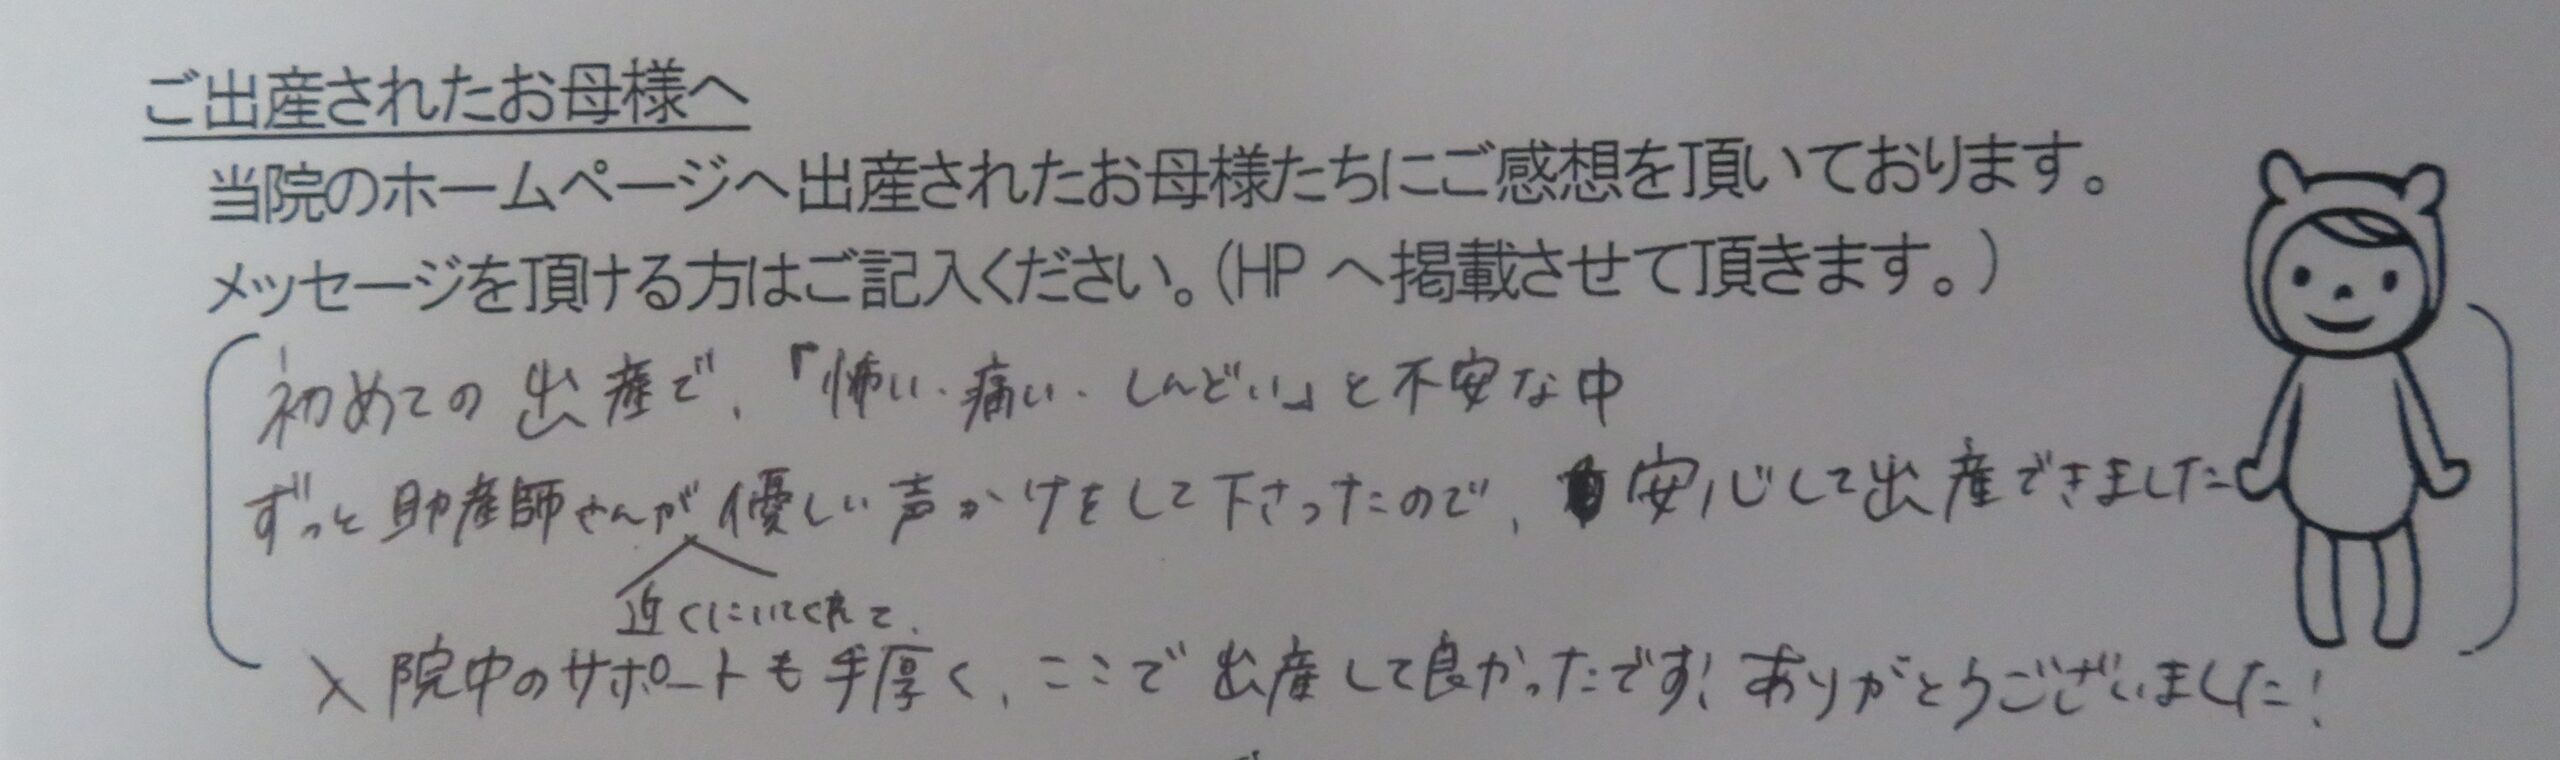 ご出産されたお母様へ
当院のホームページへ出産されたお母様たちにご感想を頂いております。
メッセージを頂ける方はご記入ください。(HP へ掲載させて頂きます。)
初めての出産で、「怖い・痛い・しんどい」と不安な中
ずっと助産師さんが優しい声かけをして下さったので、安心して出産できました
近くにいてくれて、
入院中のサポートも手厚く、ここで出産して良かったです！ありがとうございました！